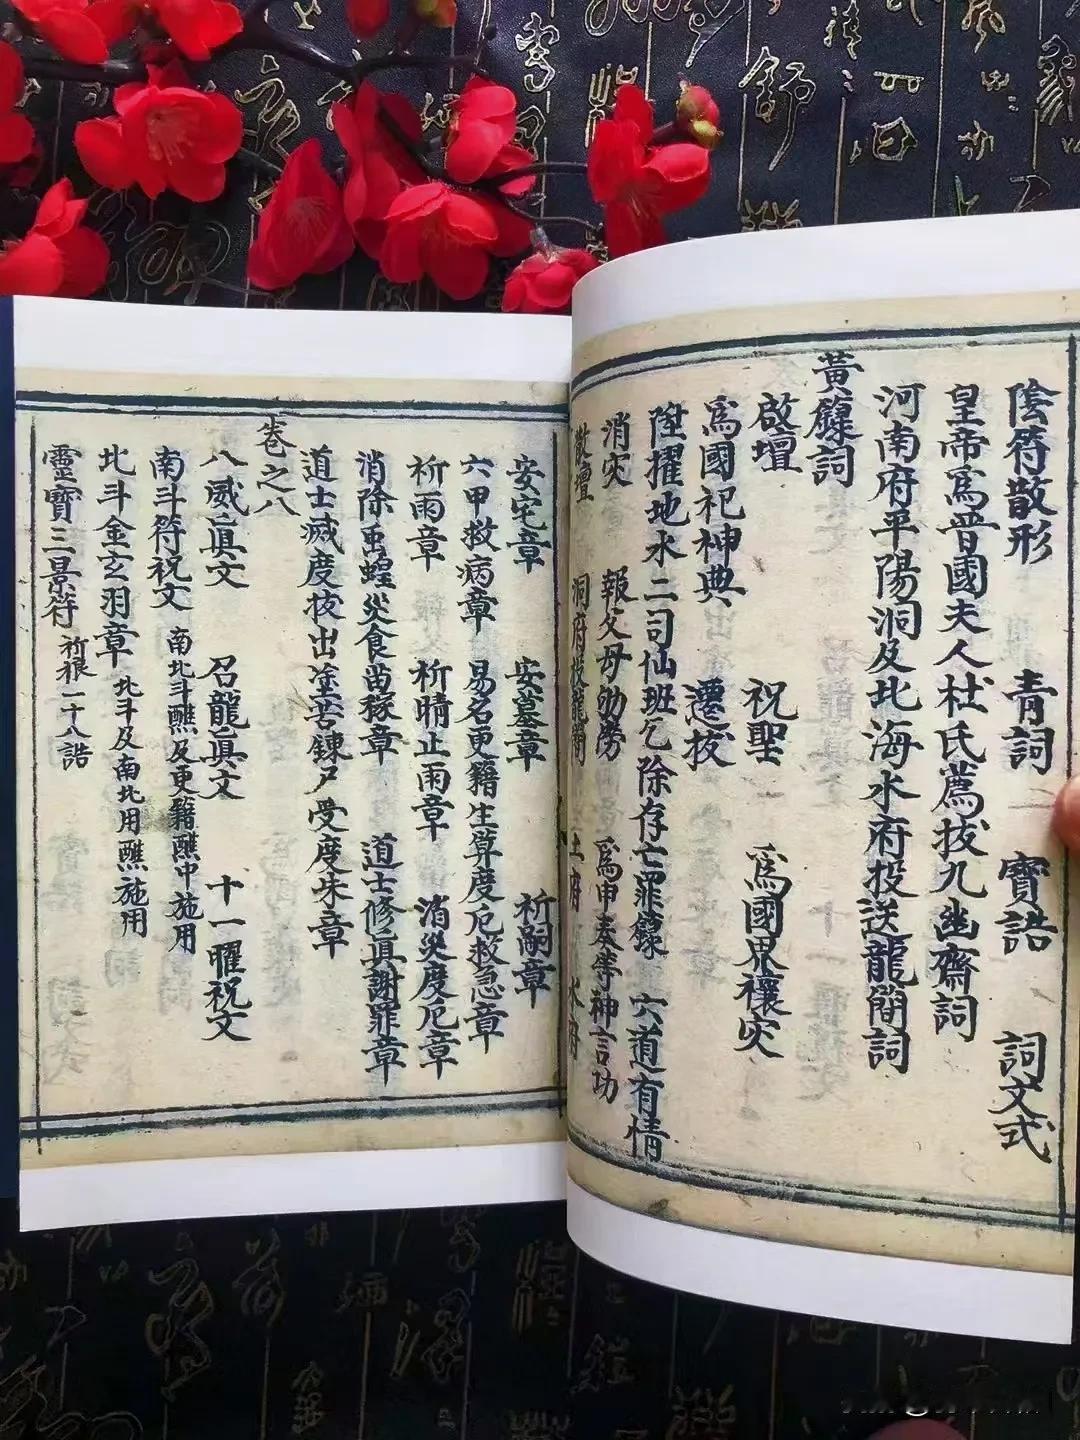 陰符散形 青詞 寶誥 詞文式
皇帝為晋國夫人杜氏薦拔九幽齋詞
河南府平陽洞及北海水府投送龍簡詞
黃籙詞
啟壇 祝聖 為國界禳灾
為國祀神典 遷拔
陞擢地水二司仙班乞除存亡罪籙 六道有情
消灾 報父母劬勞 為申奏等神言功
散壇 洞府投龍簡 土府 水府
安宅章 安墓章 祈嗣章
六甲救病章 易名更籍生算度厄救急章
祈雨章 祈晴止雨章 消灾度厄章
消除虫蝗灾食苗稼章 道士修眞謝罪章
道士滅度拔出塗苦鍊尸受度朱章
卷之八
八威眞文 召龍眞文 十一曜祝文
南斗符祝文 南北斗醮及更籍醮中施用
北斗金玄羽章 北斗及南北用醮施用
靈寶三景符 祈禳二十八誥